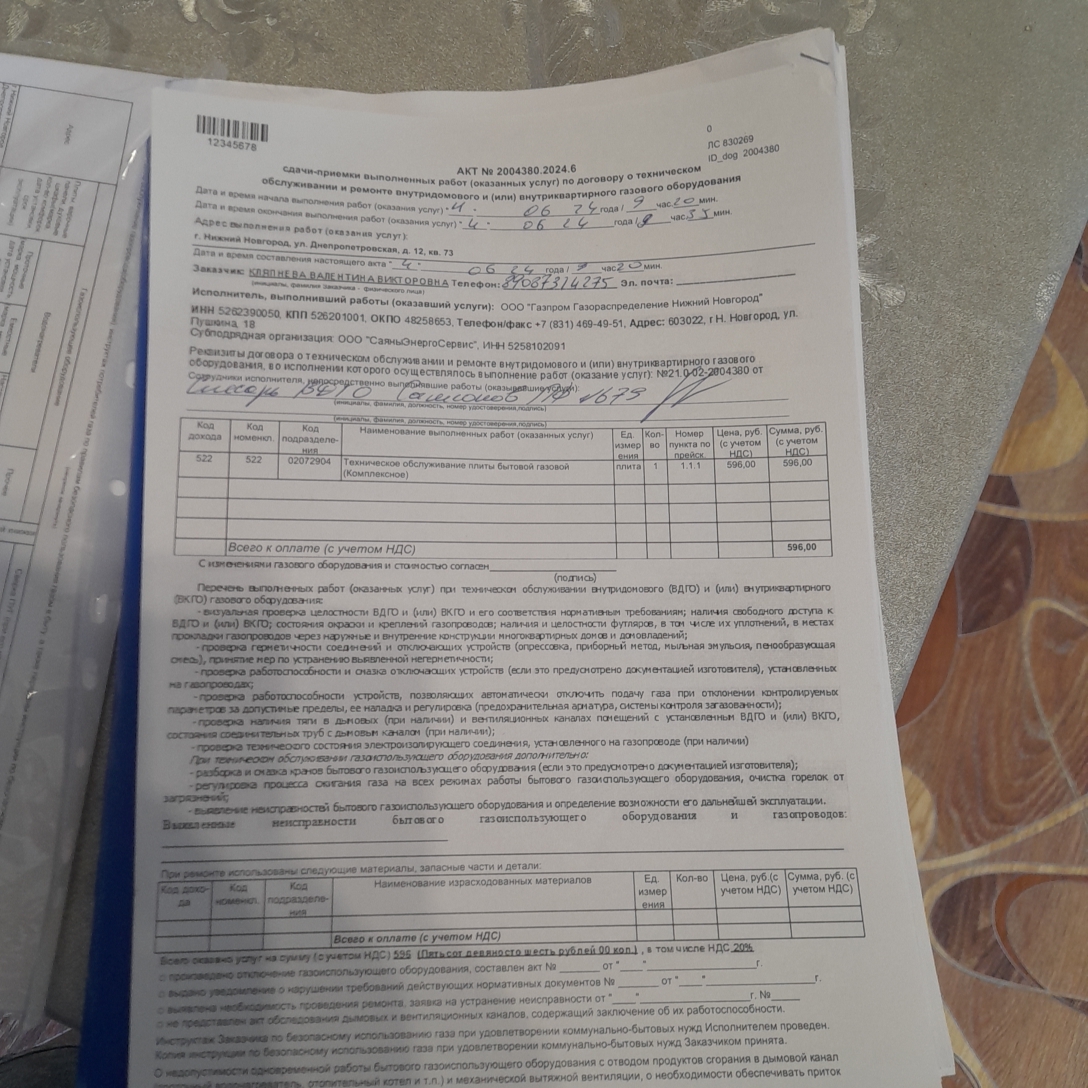 12345678
0
ЛС 830269
ID_dog 2004380
АКТ № 2004380.2024.6
сдачи-приемки выполненных работ (оказанных услуг) по договору о техническом
обслуживании и ремонте внутридомового и (или) внутриквартирного газового оборудования
Дата и время начала выполнения работ (оказания услуг) "4." 06 24 года / 9 час 20 мин.
Дата и время окончания выполнения работ (оказания услуг) "4." 06 24 года / 9 час 35 мин.
Адрес выполнения работ (оказания услуг):
г. Нижний Новгород, ул. Днепропетровская, д. 12, кв. 73
Дата и время составления настоящего акта "4." 06 24 года / 9 час 20 мин.
Заказчик: КЛЯПНЕВА ВАЛЕНТИНА ВИКТОРОВНА Телефон: 89087314275 Эл. почта:
(инициалы, фамилия заказчика - физического лица)
Исполнитель, выполнивший работы (оказавший услуги): ООО "Газпром Газораспределение Нижний Новгород"
ИНН 5262390050, КПП 526201001, ОКПО 48258653, Телефон/факс +7 (831) 469-49-51, Адрес: 603022, г Н. Новгород, ул.
Пушкина, 18
Субподрядная организация: ООО "СаяныЭнергоСервис", ИНН 5258102091
Реквизиты договора о техническом обслуживании и ремонте внутридомового и (или) внутриквартирного газового
оборудования, во исполнении которого осуществлялось выполнение работ (оказание услуг): №21.0-02-2004380 от
Сотрудники исполнителя, непосредственно выполнявшие работы (оказывавшие услуги):
слесарь ВДГО
(инициалы, фамилия, должность, номер удостоверения,подпись)
(инициалы, фамилия, должность, номер удостоверения,подпись)
Код дохода Код номенкл. Код подразделе-ния Наименование выполненных работ (оказанных услуг) Ед. измер ения Кол-во Номер пункта по прейск. Цена, руб. (с учетом НДС) Сумма, руб. (с учетом НДС)
522 522 02072904 Техническое обслуживание плиты бытовой газовой плита 1 1.1.1 596,00 596,00
(Комплексное)
Всего к оплате (с учетом НДС) 596,00
С изменениями газового оборудования и стоимостью согласен
(подпись)
Перечень выполненных работ (оказанных услуг) при техническом обслуживании внутридомового (ВДГО) и (или) внутриквартирного
(ВКГО) газового оборудования:
- визуальная проверка целостности ВДГО и (или) ВКГО и его соответствия нормативным требованиям; наличия свободного доступа к
ВДГО и (или) ВКГО; состояния окраски и креплений газопроводов; наличия и целостности футляров, в том числе их уплотнений, в местах
прокладки газопроводов через наружные и внутренние конструкции многоквартирных домов и домовладений;
- проверка герметичности соединений и отключающих устройств (опрессовка, приборный метод, мыльная эмульсия, пенообразующая
смесь), принятие мер по устранению выявленной негерметичности;
- проверка работоспособности и смазка отключающих устройств (если это предусмотрено документацией изготовителя), установленных
на газопроводах;
- проверка работоспособности устройств, позволяющих автоматически отключить подачу газа при отклонении контролируемых
параметров за допустимые пределы, ее наладка и регулировка (предохранительная арматура, системы контроля загазованности);
- проверка наличия тяги в дымовых (при наличии) и вентиляционных каналах помещений с установленным ВДГО и (или) ВКГО,
состояния соединительных труб с дымовым каналом (при наличии);
- проверка технического состояния электроизолирующего соединения, установленного на газопроводе (при наличии)
При техническом обслуживании газоиспользующего оборудования дополнительно:
- разборка и смазка кранов бытового газоиспользующего оборудования (если это предусмотрено документацией изготовителя);
- регулировка процесса сжигания газа на всех режимах работы бытового газоиспользующего оборудования, очистка горелок от
загрязнений;
- выявление неисправностей бытового газоиспользующего оборудования и определение возможности его дальнейшей эксплуатации.
Выявленные неисправности бытового газоиспользующего оборудования и газопроводов:
При ремонте использованы следующие материалы, запасные части и детали:
Код дохо-да Код номенкл. Код подразделе-ния Наименование израсходованных материалов Ед. измер ения Кол-во Цена, руб.(с учетом НДС) Сумма, руб. (с учетом НДС)
Всего к оплате (с учетом НДС)
Всего оказано услуг на сумму (с учетом НДС) 596 (Пятьсот девяносто шесть рублей 00 коп.) , в том числе НДС 20%
□ произведено отключение газоиспользующего оборудования, составлен акт № от " " г.
□ выдано уведомление о нарушении требований действующих нормативных документов № от " " г.
□ выявлена необходимость проведения ремонта, заявка на устранение неисправности от " " г. №
□ не представлен акт обследования дымовых и вентиляционных каналов, содержащий заключение об их работоспособности.
Инструктаж Заказчика по безопасному использованию газа при удовлетворении коммунально-бытовых нужд Исполнителем проведен.
Копия инструкции по безопасному использованию газа при удовлетворении коммунально-бытовых нужд Заказчиком принята.
О недопустимости одновременной работы бытового газоиспользующего оборудования с отводом продуктов сгорания в дымовой канал
отопительный котел и т.п.) и механической вытяжной вентиляции, о необходимости обеспечивать приток